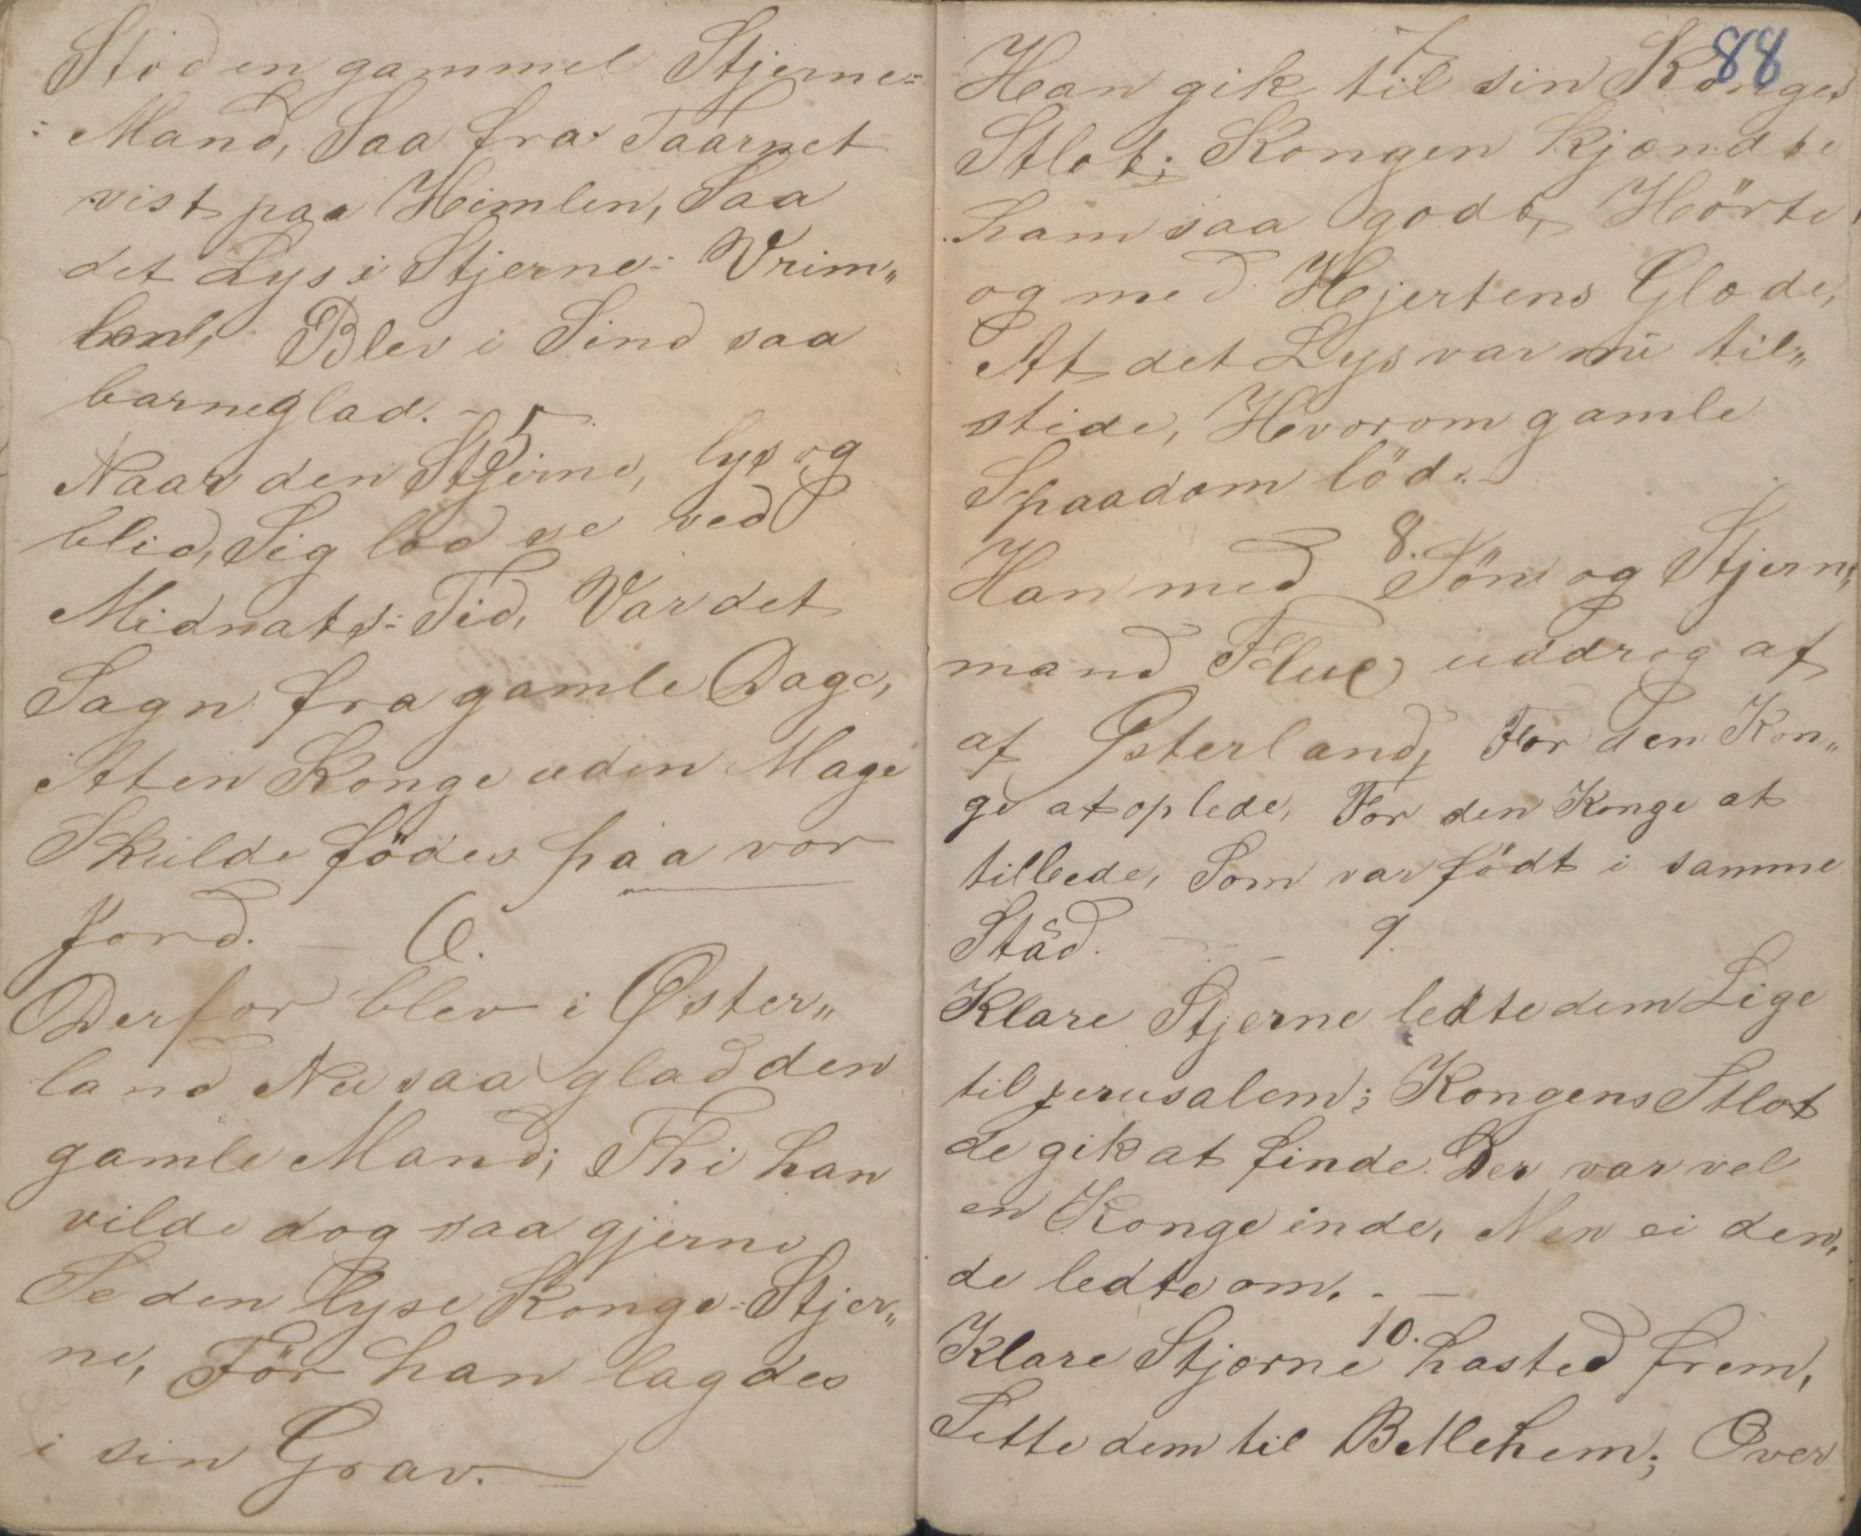 Stod en gammel Stjerne=
=Mand, Saa fra Taarnet
vist paa Himlen, Saa
det Lys i Stjerne=Vrim„
len, Blev i Sind saa
barneglad. –
5.
Naar den Stjerne, lys og
blid, Sig lod se ved
Midnats=Tid, Var det
Sagn fra gamle Dage,
At en Konge uden Mage
Skulde födes paa vor
Jord. – 6.
Derfor blev i Øster„
land Nu saa glad den
gamle Mand; Thi han
vilde dog saa gjerne
Se den lyse Konge=Stjer„
ne, För han lagdes
i sin Grav. –
88
7
Han gik til sin Konges
Slot; Kongen kjendte
ham saa godt, Hörte
og med Hjertens Glæde,
At det Lys var nu til„
stede, Hvorom gamle
Spaadom löd. –
8.
Han med Sön og Stjern„
mand Flux uddrog af
af Østerland, For den Kon„
ge at oplede, For den Konge at
tilbede, Som var födt i samme
Stûd. – – 9.
Klare Stjerne ledte dem Lige
til Jerusalem; Kongens Slot
de gik at finde. Der var vel
en Konge inde, Men ei den,
de ledte om. – –
10.
Klare Stjerne hasted frem,
Lette dem til Betlehem; Over